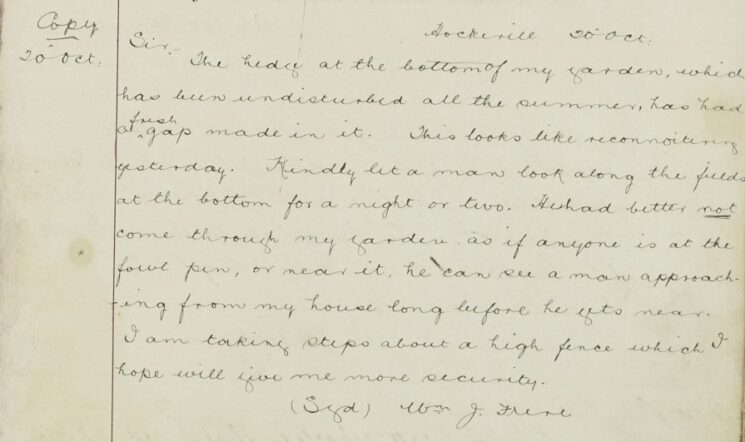 Copy
20 Oct:
Hockerill 20 Oct:
Sir,
The hedge at the bottom of my garden, which
has been undisturbed all the summer, has had
a fresh gap made in it. This looks like reconnoitering
yesterday. Kindly let a man look along the fields
at the bottom for a night or two. He had better not
come through my garden as if anyone is at the
fowl pen, or near it, he can see a man approach-
-ing from my house long before he gets near.
I am taking steps about a high fence which I
hope will give me more security.
(Sgd) Wm J. Frere